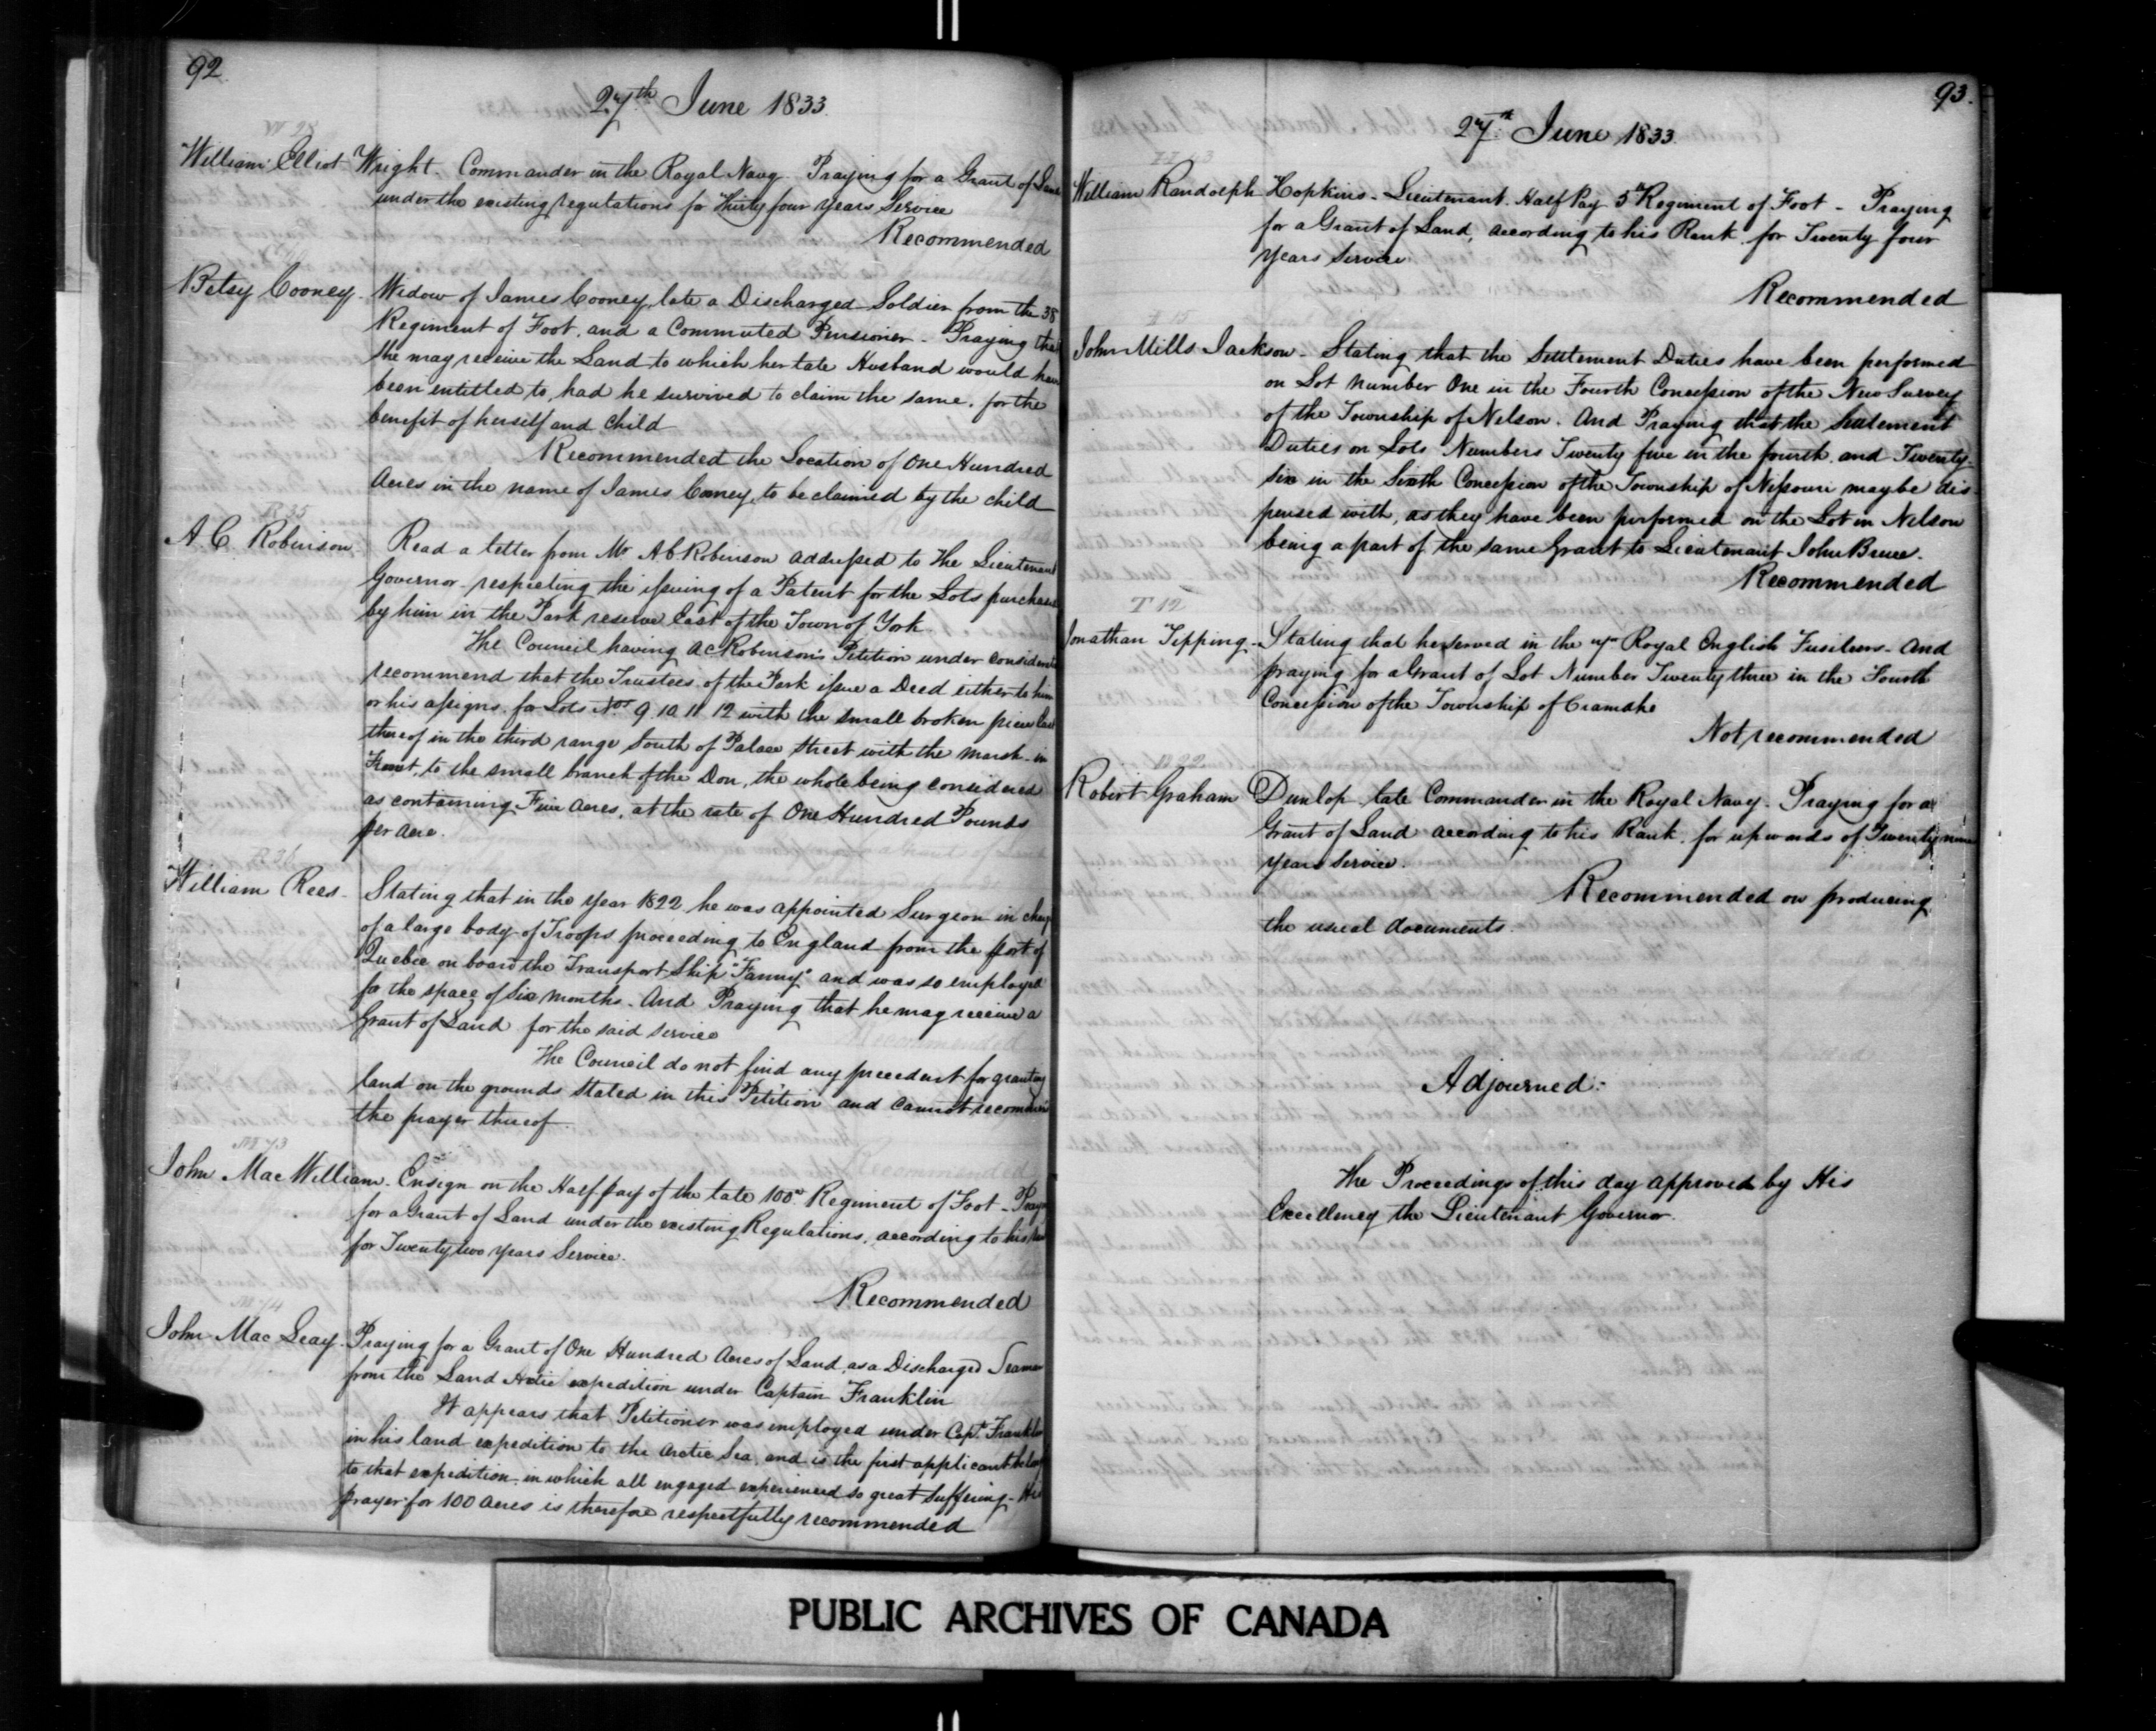 92
27th June 1833.
W 28
William Elliot Wright. Commander in the Royal Navy. Praying for a Grant of Land
under the existing regulations for Thirty four years Service
Recommended
Betsy Cooney. Widow of James Cooney, late a Discharged Soldier from the 38
Regiment of Foot, and a Commuted Pensioner - Praying that
She may receive the Land to which her late Husband would have
been entitled to, had he survived to claim the same. for the
benefit of herself and Child
Recommended the Location of One Hundred
Acres in the name of James Cooney, to be claimed by the child
R 35
A C Robinson Read a letter from Mr A C Robinson addressed to The Lieutenant
Governor respecting the issuing of a Patent for the Lots purchased
by him in the Park reserve East of the Town of York
The Council having A C Robinson's Petition under
recommend that the Trustees of the Park issue a Deed either to him
or his assigns for Lots Nos 9 10 11 12 with the small broken piece East
thereof in the third range South of Palace Street with the Marsh in
Front, to the small branch of the Don, the whole being considered
as containing Five Acres, at the rate of One Hundred Pounds
per acre.
R 36
William Rees - Stating that in the year 1822 he was appointed Surgeon in
of a large body of Troops proceeding to England from the Port of
Quebec on board the Transport Ship "Fanny" and was so employed
for the space of Six Months. And Praying that he may receive a
Grant of Land for the said service
The Council do not find any precedent for granting
land on the grounds stated in this Petition and cannot recommend
the prayer thereof
M 73
John Mac William. Ensign on the Half pay of the late 100th Regiment of Foot - Praying
for a Grant of Land under the existing Regulations, according to his
for Twenty two years Service.
Recommended
M 74
John Mac Leay. Praying for a Grant of One Hundred Acres of Land, as a Discharged Seaman
from the Land Arctic expedition under Captain Franklin
It appears that Petitioner was employed under Capt. Franklin
in his land expedition to the Arctic Sea, and is the first applicant
to that expedition in which all engaged experienced so great suffering - His
prayer for 100 Acres is therefore respectfully recommended
93.
27th June 1833.
William Randolph Hopkins - Lieutenant Half Pay 5th Regiment of Foot - Praying
for a Grant of Land, according to his Rank for Twenty four
years Service
Recommended
John Mills Jackson - Stating that the Settlement Duties have been performed
on Lot number One in the Fourth Concession of the New Survey
of the Township of Nelson. And Praying that the Settlement
Duties on Lots Numbers Twenty five in the fourth and Twenty-
six in the Sixth Concession of the Township of Nissouri may be dis-
pensed with, as they have been performed on the Lot in Nelson
being a part of the same Grant to Lieutenant John Bruce.
Recommended
T 12
Jonathan Tipping - Stating that he served in the 7th Royal English Fusileers - And
praying for a Grant of Lot Number Twenty three in the Fourth
Concession of the Township of Cramahe
Not recommended
Robert Graham Dunlop late Commander in the Royal Navy. Praying for a
Grant of Land according to his Rank for upwards of Twenty nine
years service.
Recommended on producing
the usual documents.
Adjourned.
The Proceedings of this day approved by His
Excellency the Lieutenant Governor.
PUBLIC ARCHIVES OF CANADA